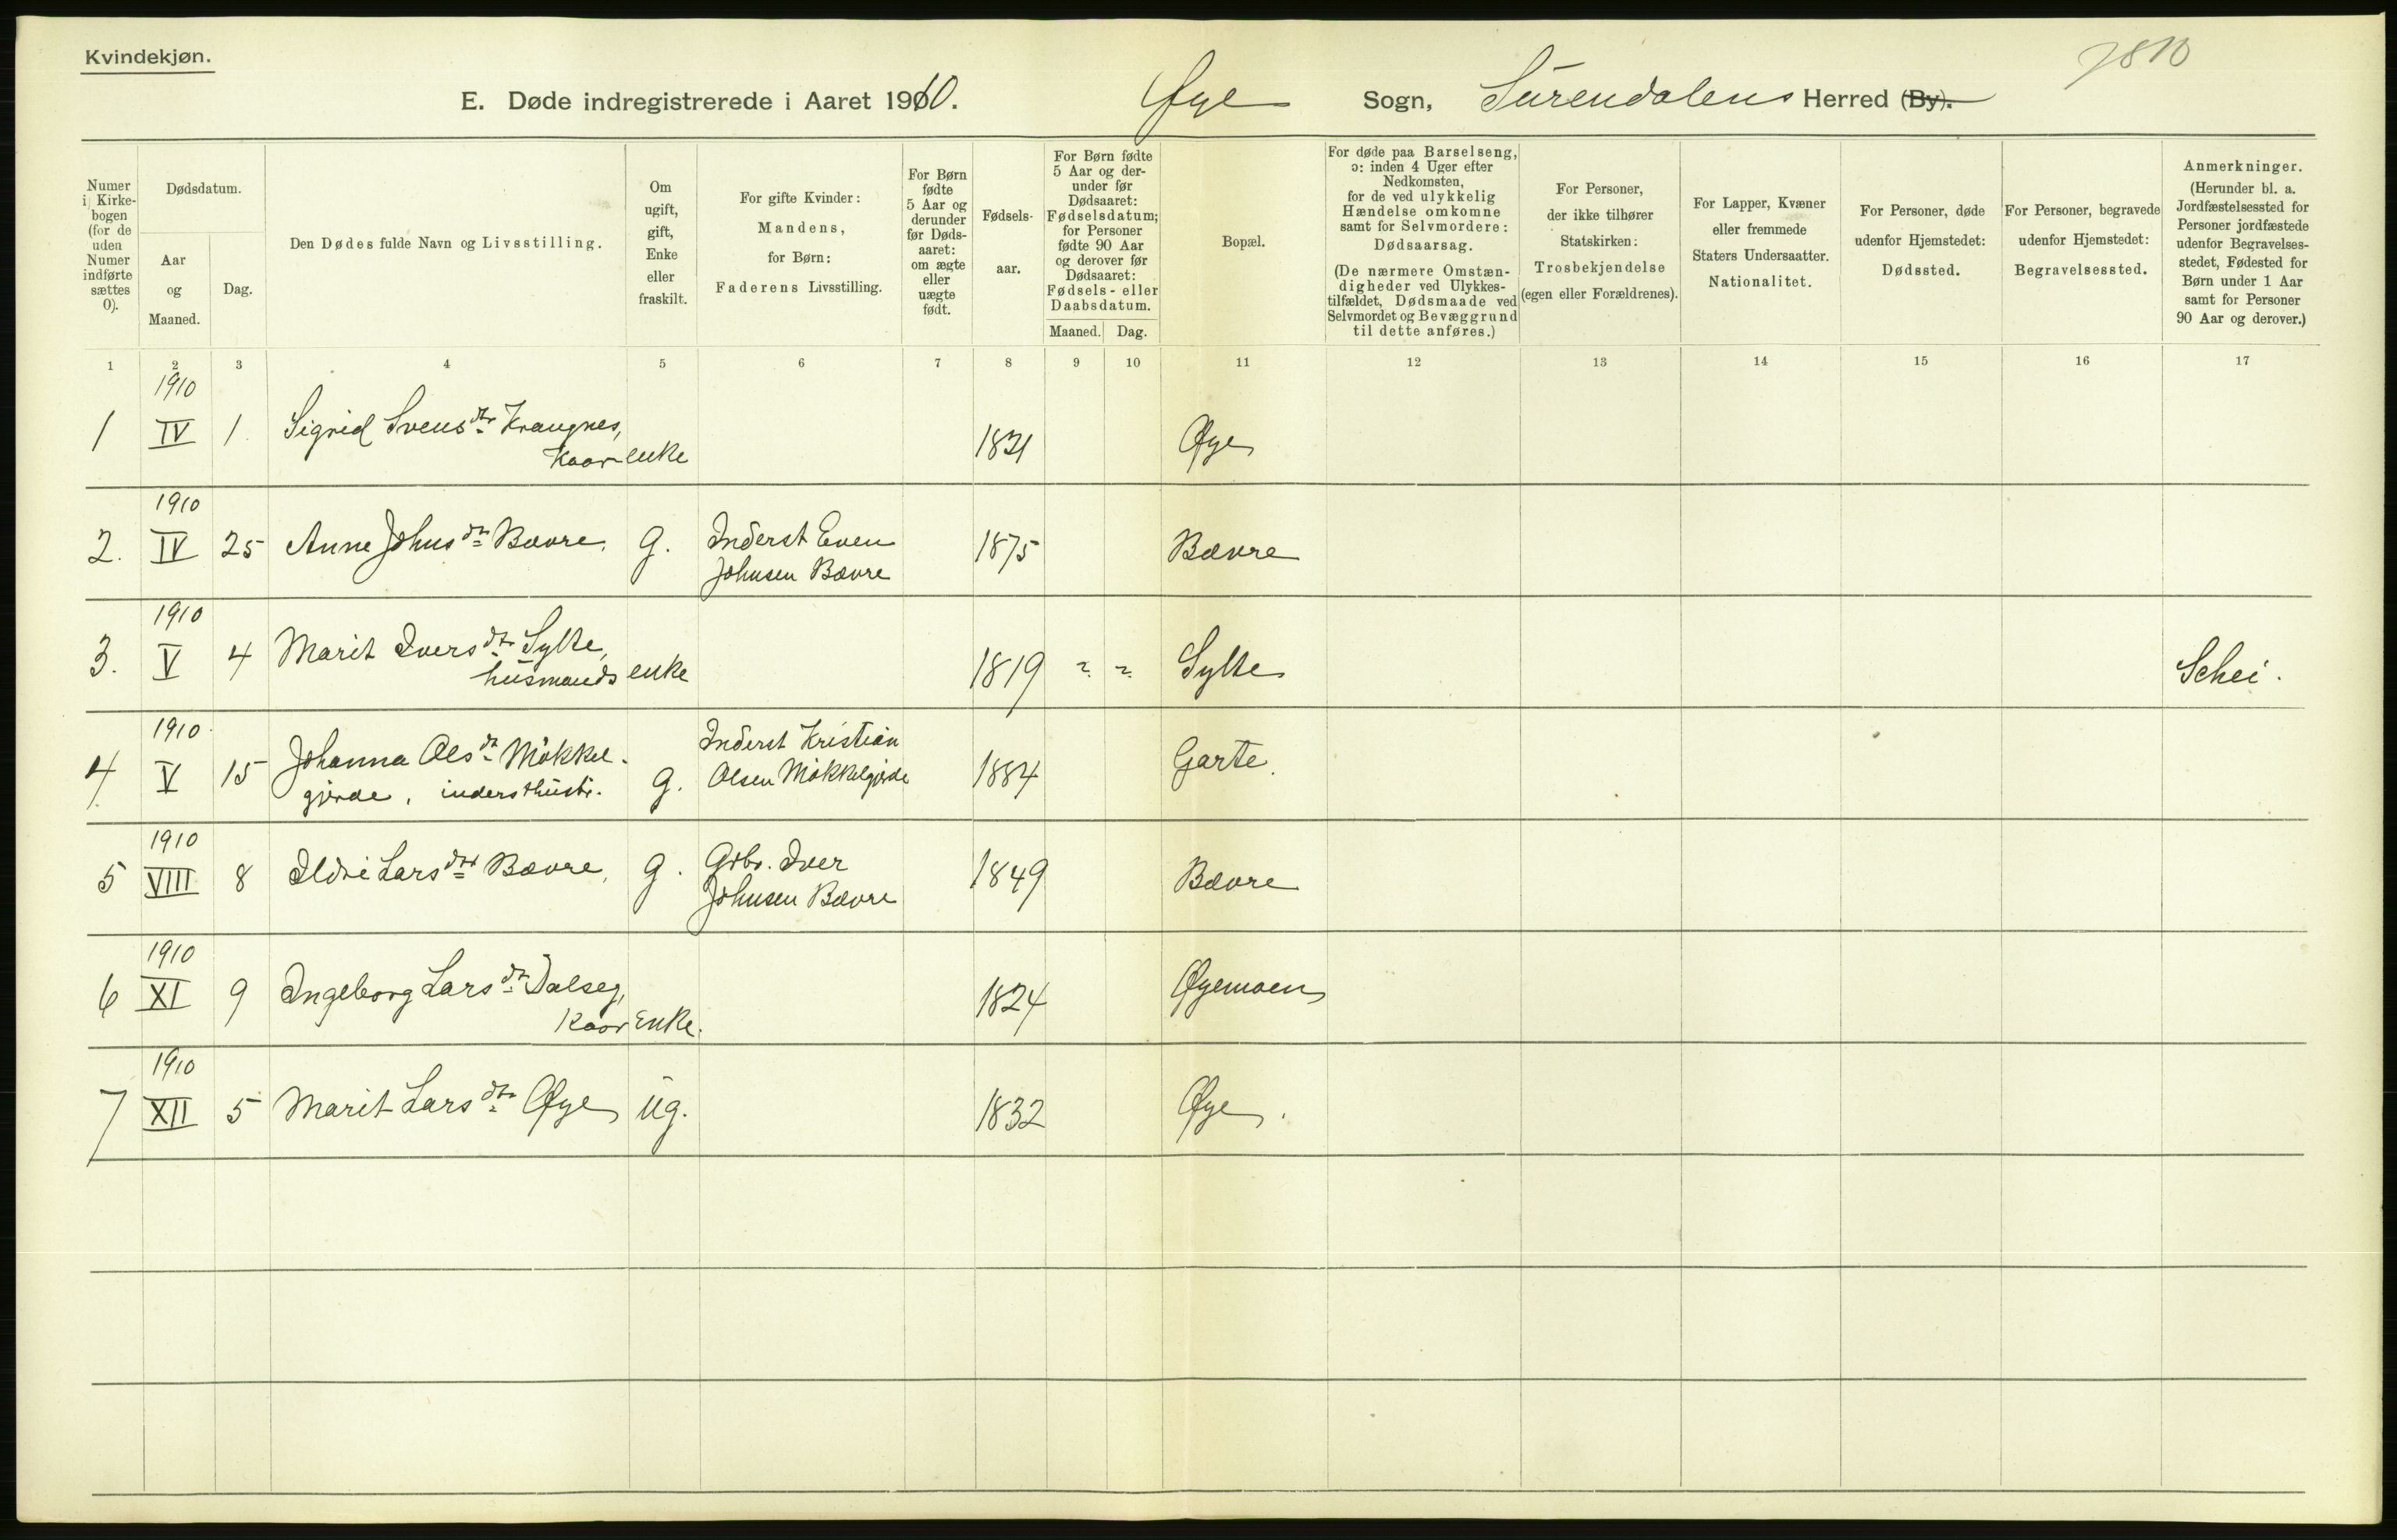 Kvindekjøn.
7810
E. Døde indregistrerede i Aaret 1910. Øye Sogn, Surendalens Herred (By).
Numer i Kirkebogen (for de uden Numer indførte sættes 0).
Dødsdatum.
Aar og Maaned.
Dag.
Den Dødes fulde Navn og Livsstilling.
Om ugift, gift, Enke eller fraskilt.
For gifte Kvinder: Mandens, for Børn: Faderens Livsstilling.
For Børn fødte 5 Aar og derunder før Dødsaaret: om ægte eller uægte født.
Fødselsaar.
For Børn fødte 5 Aar og derunder før Dødsaaret: Fødselsdatum; for Personer fødte 90 Aar og derover før Dødsaaret: Fødsels- eller Daabsdatum.
Maaned. Dag.
Bopæl.
For døde paa Barselseng, ɔ: inden 4 Uger efter Nedkomsten, for de ved ulykkelig Hændelse omkomne samt for Selvmordere: Dødsaarsag.
(De nærmere Omstændigheder ved Ulykkestilfældet, Dødsmaade ved Selvmordet og Bevæggrund til dette anføres.)
For Personer, der ikke tilhører Statskirken: Trosbekjendelse (egen eller Forældrenes).
For Lapper, Kvæner eller fremmede Staters Undersaatter. Nationalitet.
For Personer, døde udenfor Hjemstedet: Dødssted.
For Personer, begravede udenfor Hjemstedet: Begravelsessted.
Anmerkninger.
(Herunder bl. a. Jordfæstelsessted for Personer jordfæstede udenfor Begravelsesstedet, Fødested for Børn under 1 Aar samt for Personer 90 Aar og derover.)
1 2 3 4 5 6 7 8 9 10 11 12 13 14 15 16 17
1910
1 IV 1. Sigrid Svensdtr Krangnes, 1831 Øye
Kaarenke
1910
2. IV 25 Anne Johnsdtr Bævre. g. Inderst Even 1875 Bævre
Johnsen Bævre
1910
3. V 4 Marit Iversdtr Sylte, 1819 Sylte Schei.
husmandsenke
1910
4. V 15 Johanna Olsdtr Mökkel- g. Inderst Kristian 1884 Garte.
gjörde, indersthustr. Olsen Mökkelgjörde
1910
5 VIII 8 Ildri Larsdtr Bævre, g. Grbr. Iver 1849 Bævre
Johnsen Bævre
1910
6 XI 9 Ingeborg Larsdtr Dalseg, 1824 Øyemoen
Kaarenke.
1910
7 XII 5 Marit Larsdtr Øye ug. 1832 Øye.